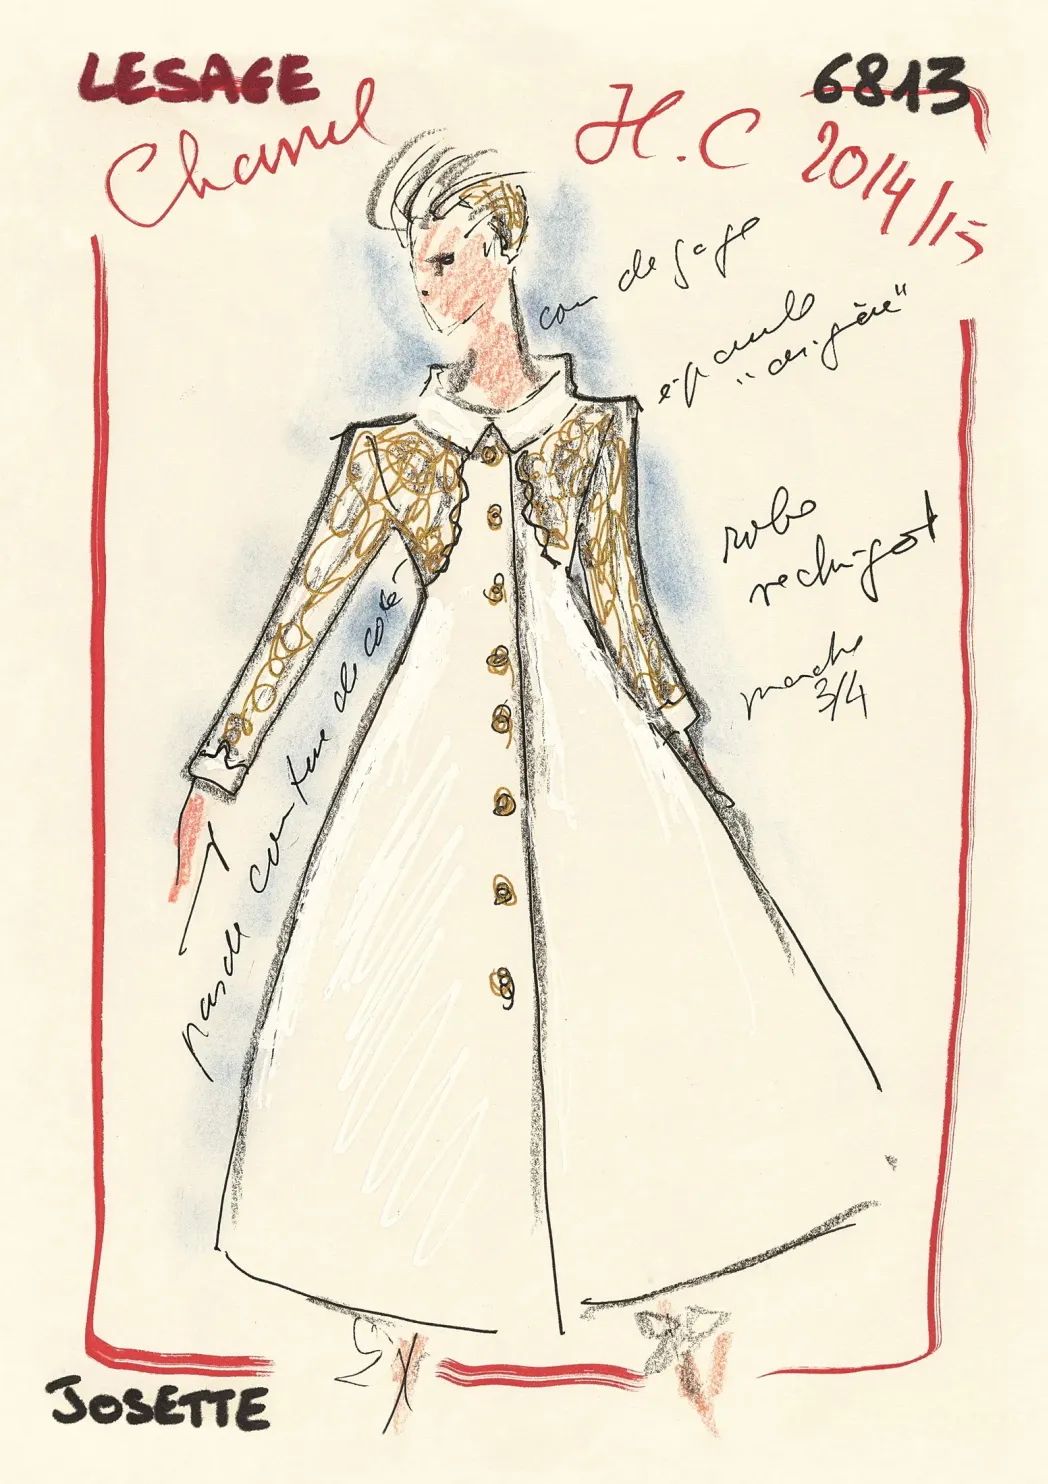 LESAGE
6813
Chanel
H.C
2014/15
cou degage
épaule
robe
redingot
manche
3/4
pas de couture de coté
JOSETTE